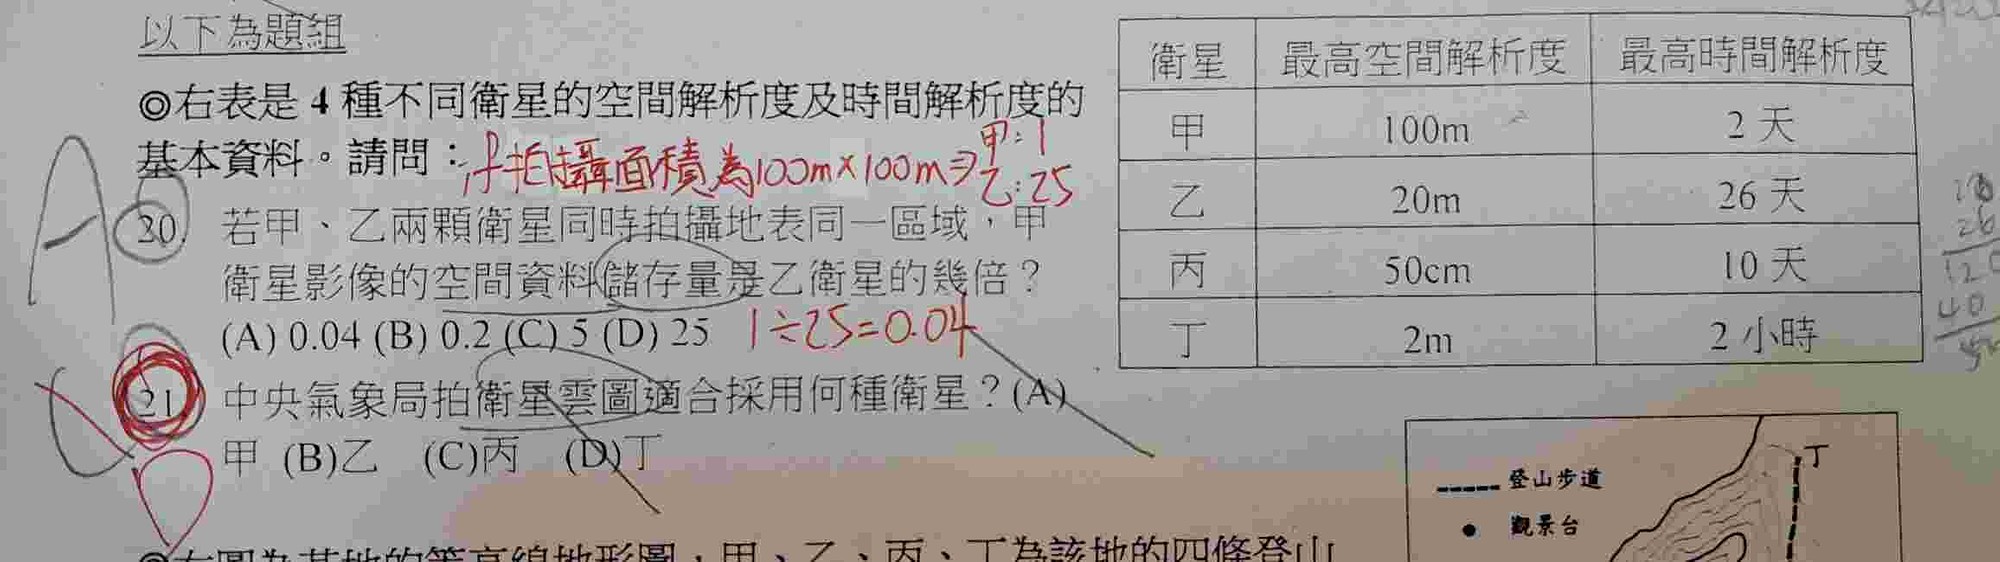 以下為題組
◎右表是 4 種不同衛星的空間解析度及時間解析度的
基本資料。請問：
拍攝面積為100m×100m⇒ 甲:1
乙:25
20. 若甲、乙兩顆衛星同時拍攝地表同一區域，甲
衛星影像的空間資料儲存量是乙衛星的幾倍？
(A) 0.04 (B) 0.2 (C) 5 (D) 25
1÷25=0.04
A
21 中央氣象局拍衛星雲圖適合採用何種衛星？(A)
甲 (B)乙 (C)丙 (D)丁
衛星 最高空間解析度 最高時間解析度
甲 100m 2 天
乙 20m 26 天
丙 50cm 10 天
丁 2m 2 小時
26
120
40
登山步道
觀景台
丁
◎右圖為某地的等高線地形圖，甲、乙、丙、丁為該地的四條登山